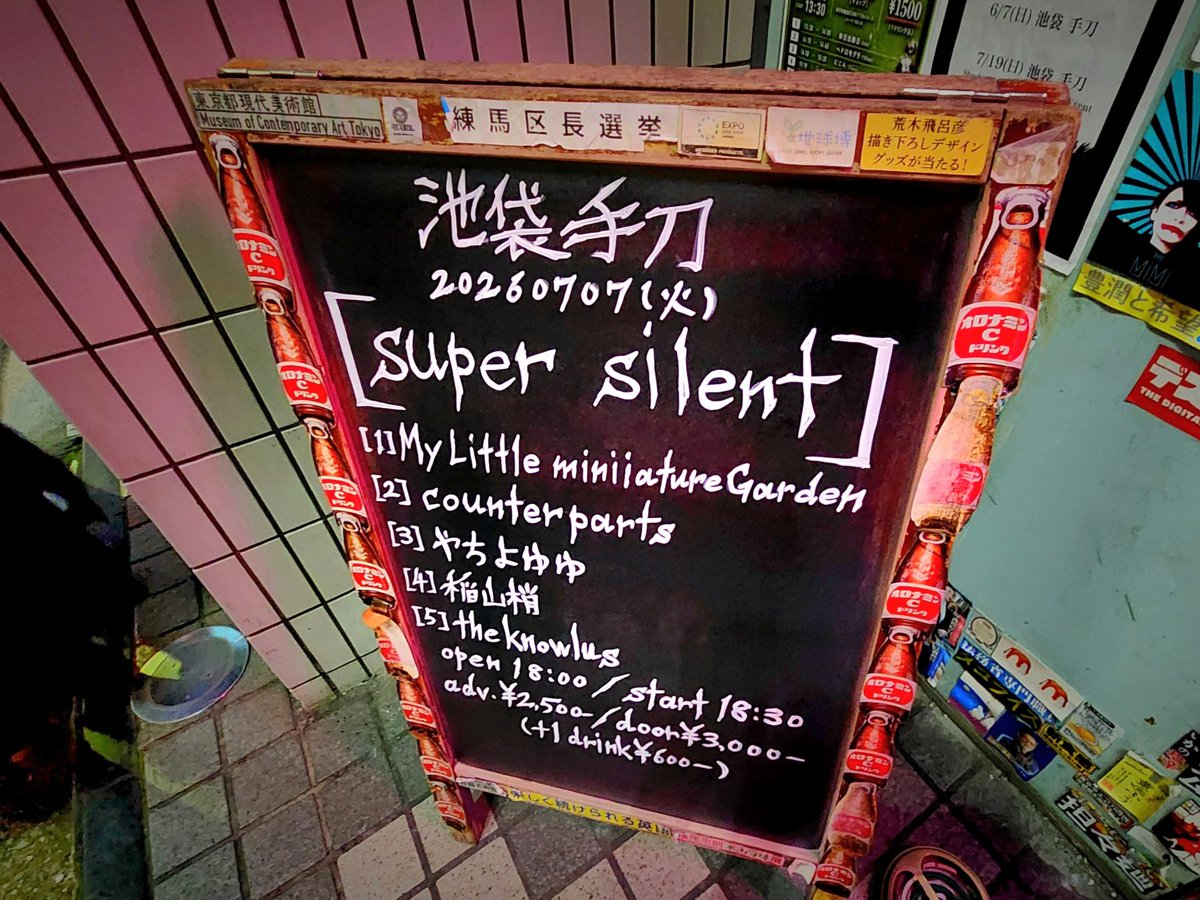 13:30
¥1500
6/7(日) 池袋 手刀
7/19(日) 池袋 手刀
東京都現代美術館
Museum of Contemporary Art Tokyo
練馬区長選挙
EXPO
地球博
荒木飛呂彦
描き下ろしデザイン
グッズが当たる!
池袋手刀
20260707(火)
[super silent]
[1] My Little miniiature Garden
[2] counterparts
[3] やちよゆゆ
[4] 稲山梢
[5] the knowlus
open 18:00 / start 18:30
adv.¥2,500- / door¥3,000-
(+1 drink¥600-)
オロナミン
C
ドリンク
MIMI
豊潤と希望
THE DIGITA
楽しく続けられる英